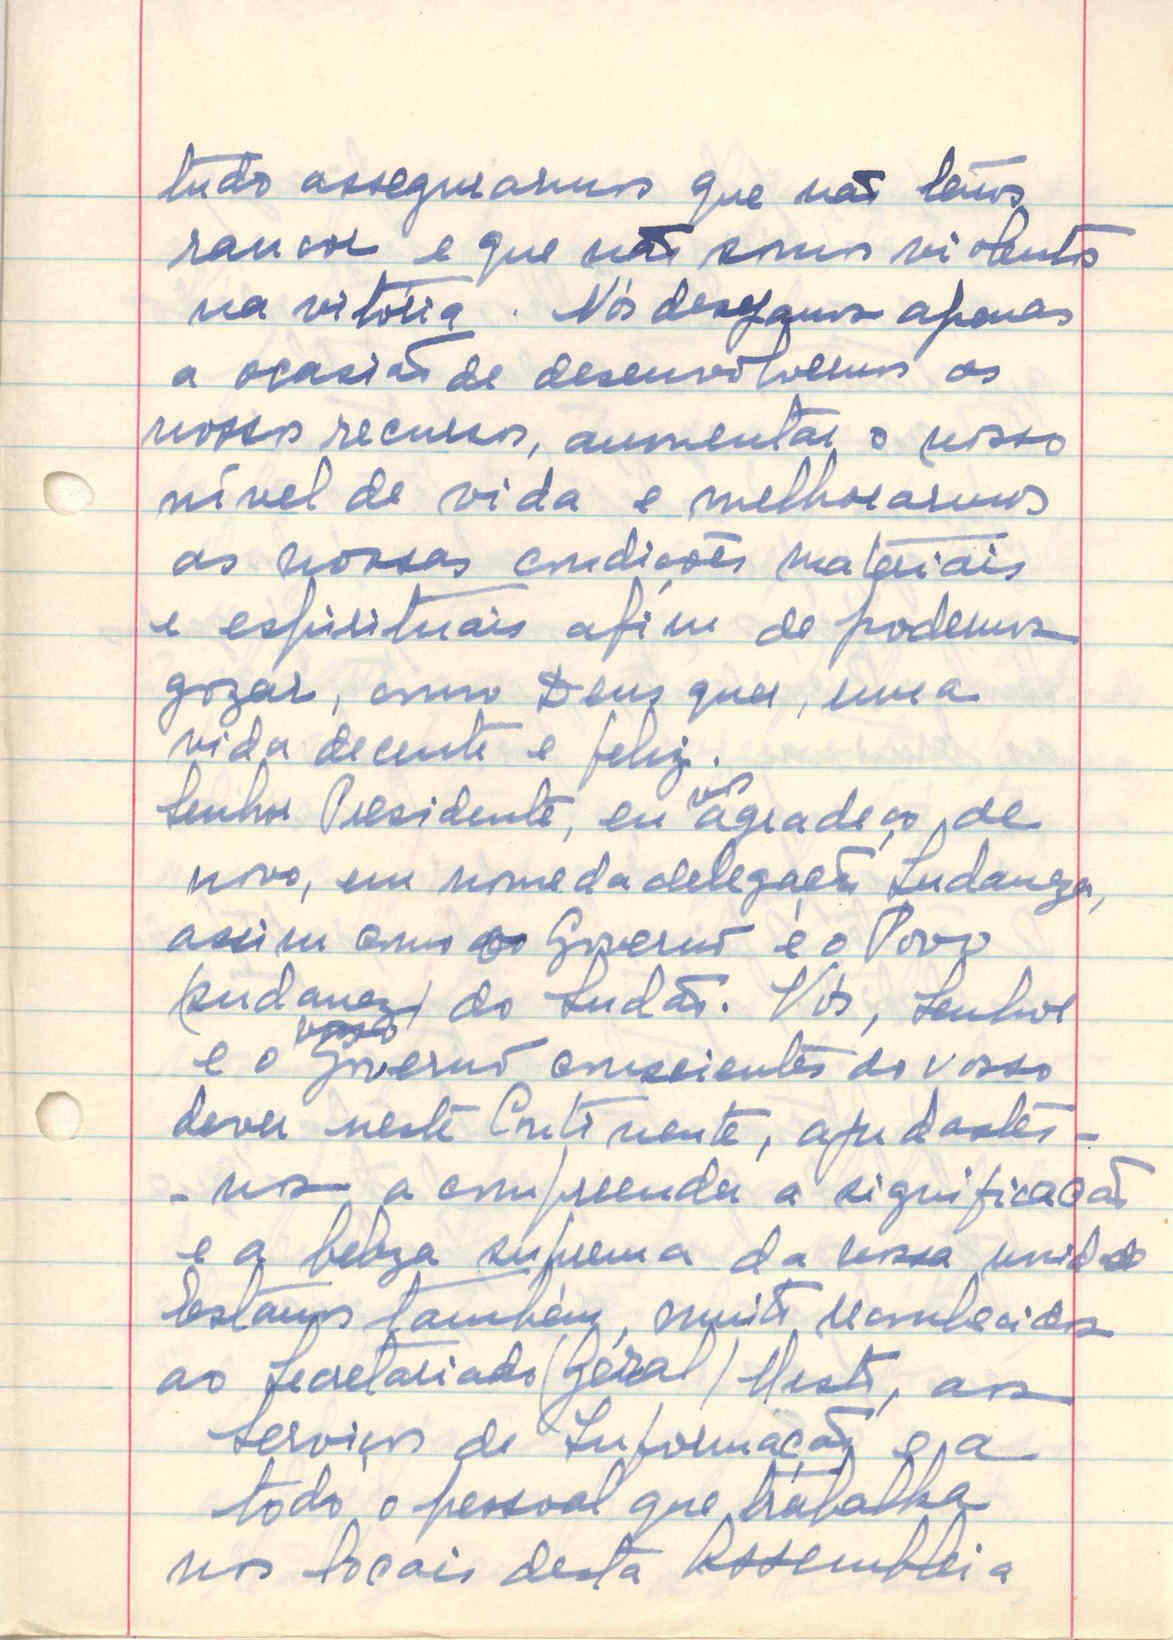 tudo asseguramos que não temos
rancor e que não somos violentos
na vitória. Nós desejamos apenas
a ocasião de desenvolvermos os
nossos recursos, aumentar o nosso
nível de vida e melhorarmos
as nossas condições materiais
e espirituais afim de podermos
gozar, como Deus quer, uma
vida decente e feliz.
Senhor Presidente, eu vos agradeço, de
novo, em nome da delegação Sudaneza,
assim como o Governo e o Povo
(sudanez) do Sudão. Vós, Senhor
e o vosso Governo conscientes do vosso
dever neste Continente, ajudastes-
-nos a compreender a significação
e a beleza suprema da nossa unidade
Estamos também, muito reconhecidos
ao Secretariado (Geral) , aos
Serviços de Informação e a
todo o pessoal que trabalha
nos locais desta Assembleia